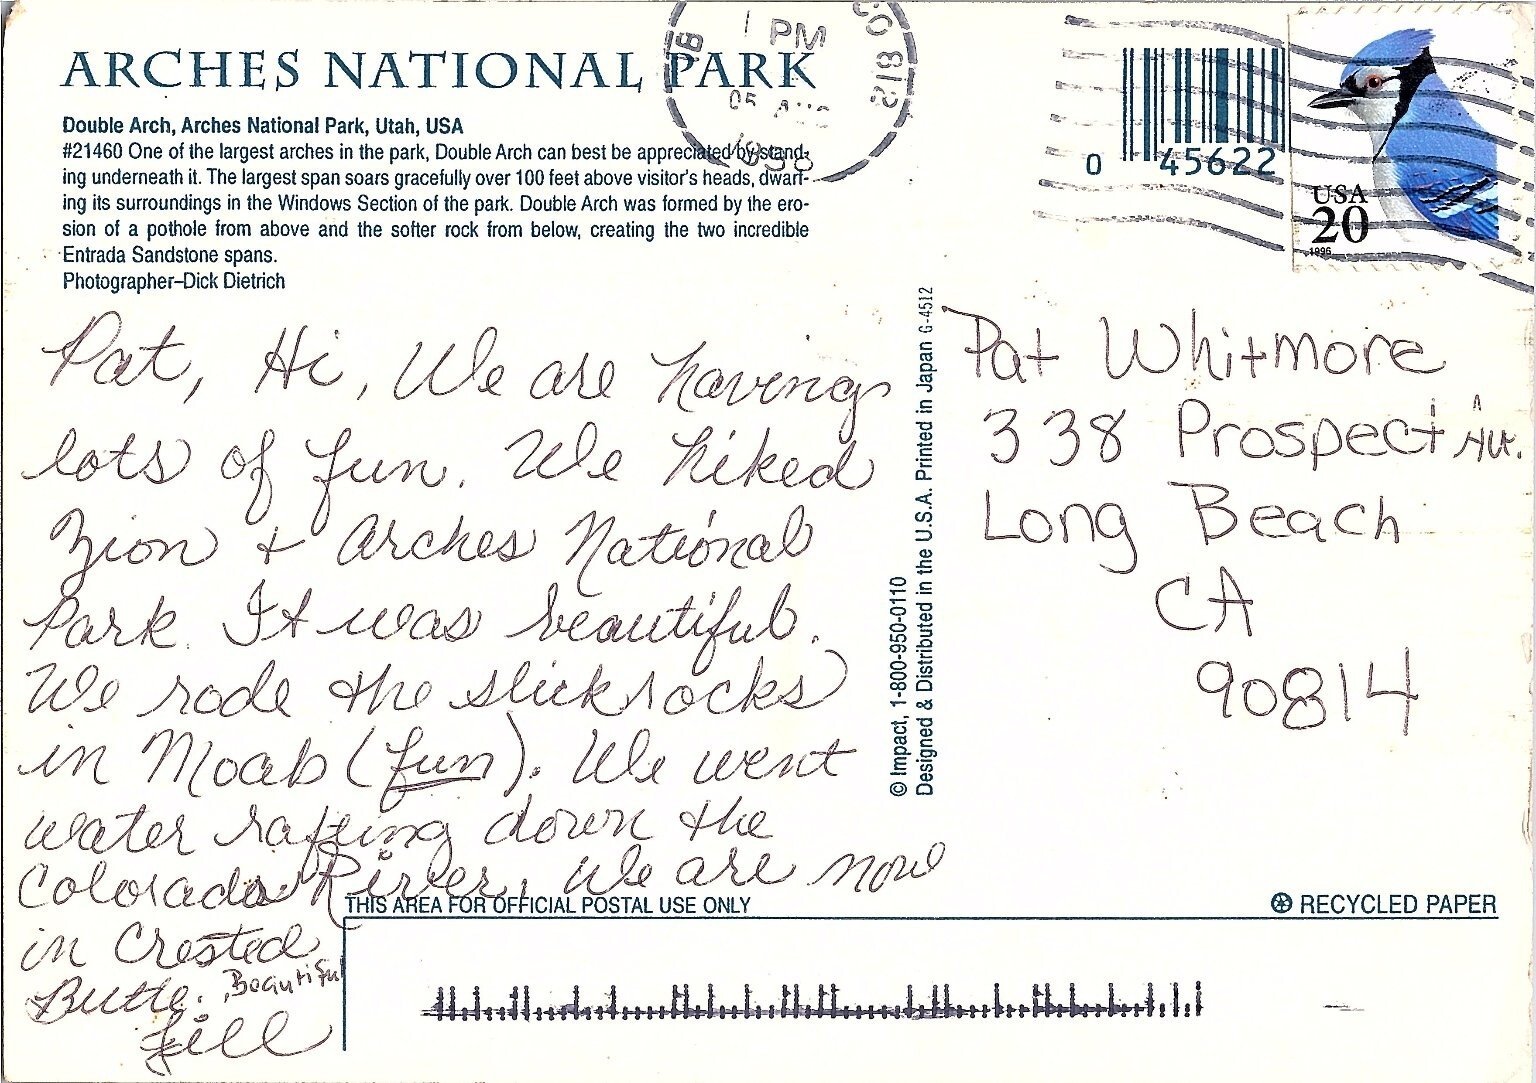 ARCHES NATIONAL PARK
Double Arch, Arches National Park, Utah, USA
#21460 One of the largest arches in the park, Double Arch can best be appreciated by stand-
ing underneath it. The largest span soars gracefully over 100 feet above visitor's heads, dwarf-
ing its surroundings in the Windows Section of the park. Double Arch was formed by the ero-
sion of a pothole from above and the softer rock from below, creating the two incredible
Entrada Sandstone spans.
Photographer–Dick Dietrich
1 PM
CO 812
05 AUG
0 45622
USA
20
1996
Pat, Hi, We are having
lots of fun. We hiked
Zion + Arches National
Park. It was beautiful.
We rode the slickrocks
in Moab (fun). We went
water rafting down the
Colorado River. We are now
in Crested
Butte. Beautiful
Jill
© Impact, 1-800-950-0110
Designed & Distributed in the U.S.A. Printed in Japan G-4512
Pat Whitmore
338 Prospect Ave.
Long Beach
CA
90814
THIS AREA FOR OFFICIAL POSTAL USE ONLY
RECYCLED PAPER